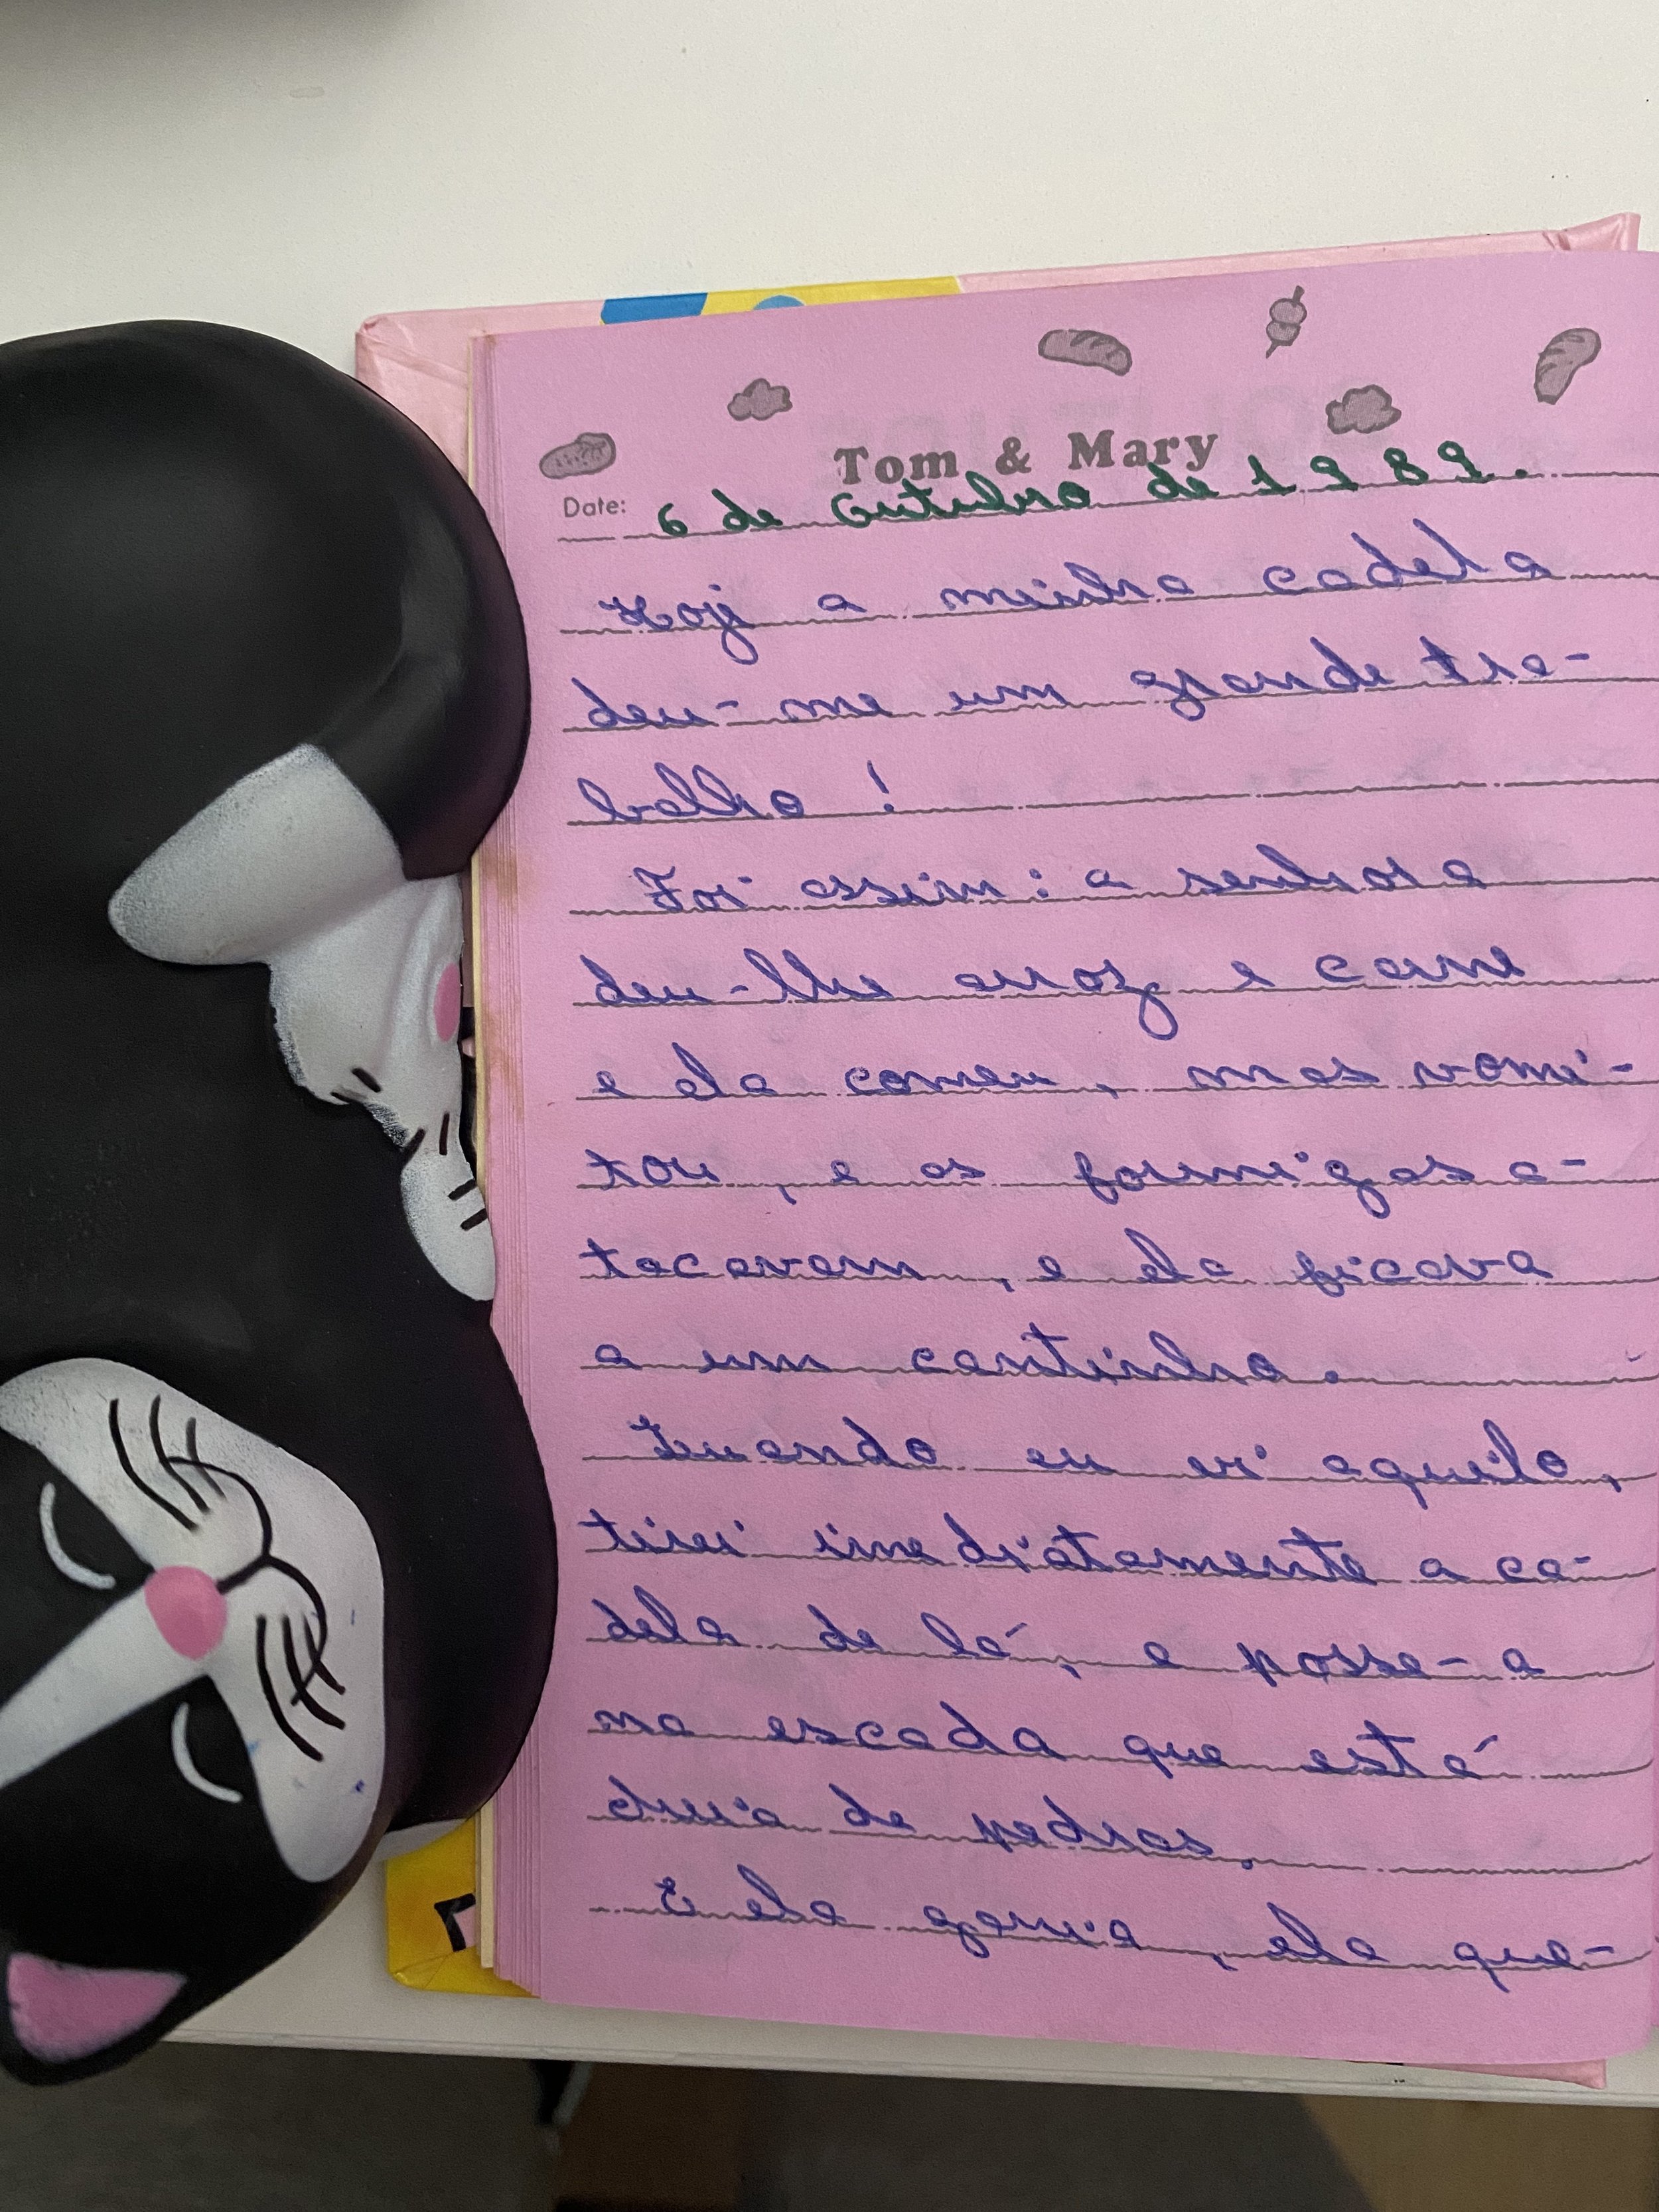 Tom & Mary
Date: 6 de Outubro de 1989.
Hoje a minha cadela
deu-me um grande tra-
balho!
Foi assim: a senhora
deu-lhe arroz e carne
e ela comeu, mas vomi-
tou, e as formigas a-
tacavam, e ela ficava
a um cantinho.
Quando eu vi aquilo,
tirei imediatamente a ca-
dela de lá, e posse-a
na escada que está
cheia de pedras.
E ela gania, ela que-